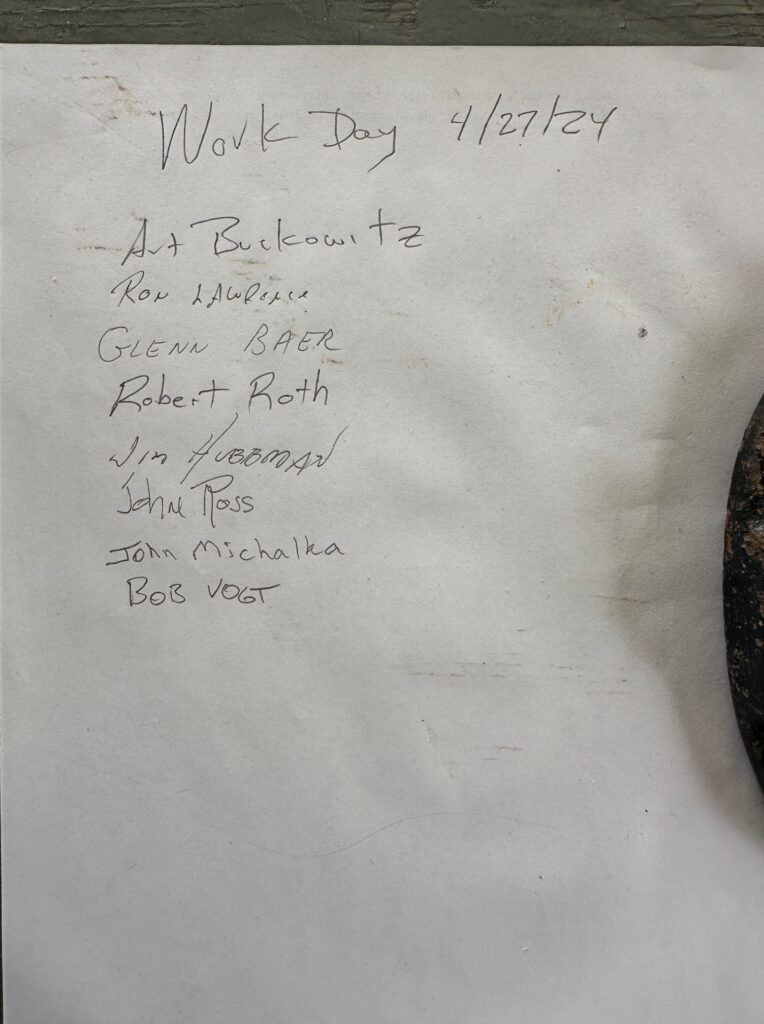 Work Day 4/27/24
Art Buckowitz
Ron LAWRence
GLENN BAER
Robert Roth
Jim HUBBMAN
John Ross
John Michalka
BOB VOGT